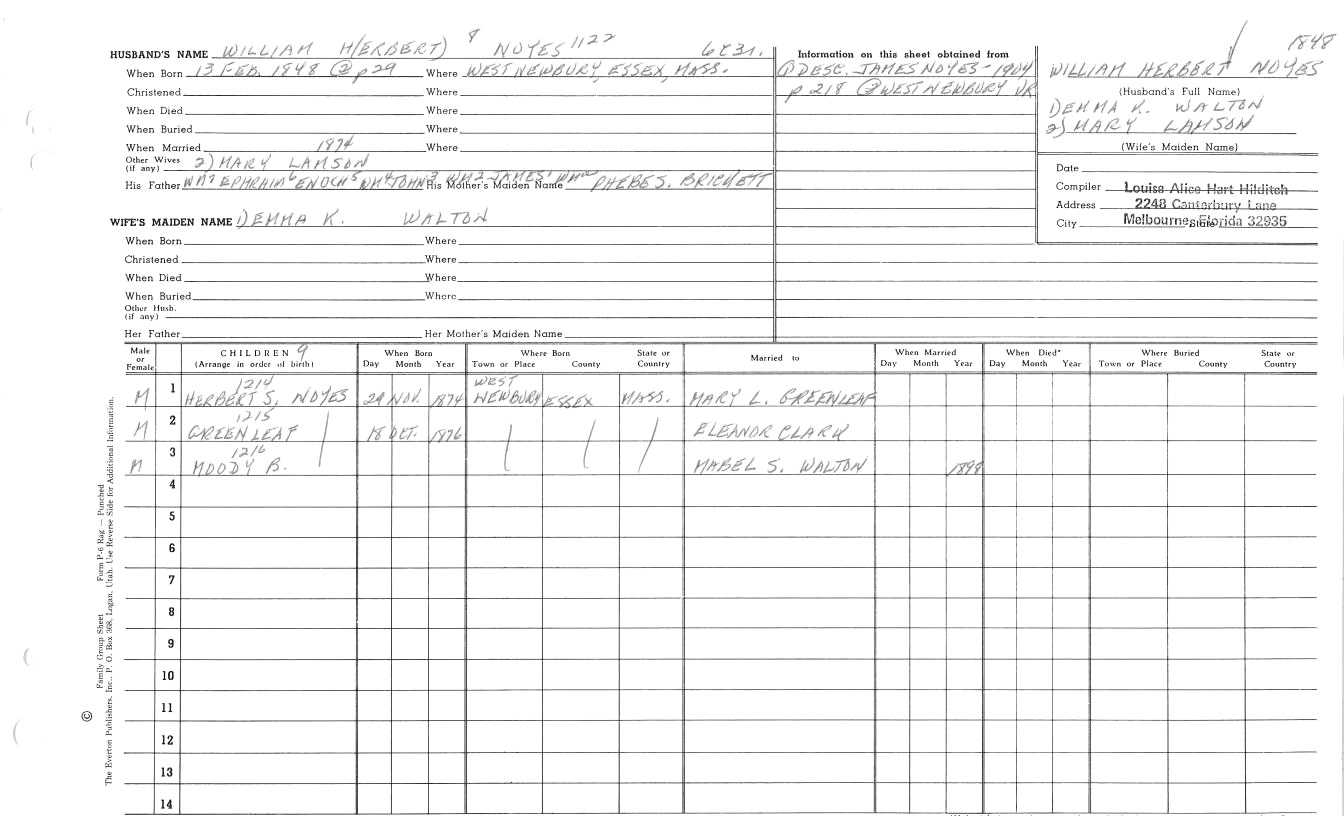 HUSBAND'S NAME WILLIAM H(ERBERT) 8 NOYES 1122
When Born 13 FEB. 1848 @ p29 Where WEST NEWBURY, ESSEX, MASS.
Christened Where
When Died Where
When Buried Where
When Married 1874 Where
Other Wives (if any) 2) MARY LAMSON
His Father WM7 EPHRAIM6 ENOCH5 His Mother's Maiden Name PHEBE S. BRICKETT
WIFE'S MAIDEN NAME 1) EMMA K. WALTON
When Born Where
Christened Where
When Died Where
When Buried Where
Other Husb. (if any)
Her Father Her Mother's Maiden Name
Information on this sheet obtained from
DESC. JAMES NOYES - 1904
p 218 @ WEST NEWBURY VR
1848
WILLIAM HERBERT NOYES
(Husband's Full Name)
1) EMMA K. WALTON
2) MARY LAMSON
(Wife's Maiden Name)
Date
Compiler Louise Alice Hart Hilditch
Address 2248 Canterbury Lane
City Melbourne, Florida 32935 State
Male or Female CHILDREN 9 (Arrange in order of birth) When Born Day Month Year Where Born Town or Place County State or Country Married to When Married Day Month Year When Died* Day Month Year Where Buried Town or Place County State or Country
1214
M 1 HERBERT S. NOYES 29 NOV. 1874 WEST NEWBURY ESSEX MASS. MARY L. GREENLEAF
1215
M 2 GREENLEAF 18 OCT. 1876 ELEANOR CLARK
1216
M 3 MOODY B. MABEL S. WALTON 1898
4
5
6
7
8
9
10
11
12
13
14
Family Group Sheet Form P-6 Rag — Punched
© The Everton Publishers, Inc., P. O. Box 368, Logan, Utah. Use Reverse Side for Additional Information.